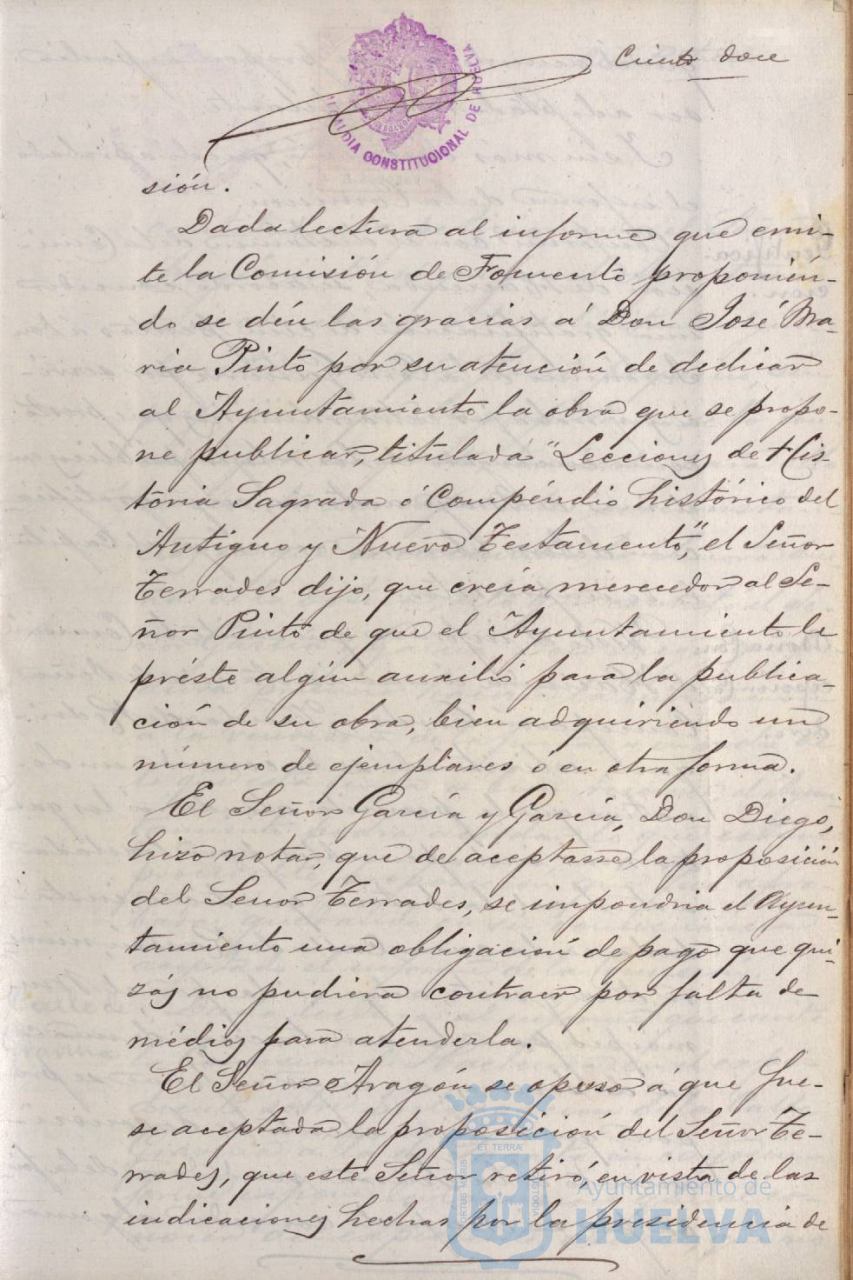 Ciento doce
ALCALDIA CONSTITUCIONAL DE HUELVA
sión.
Dada lectura al informe que emi-
te la Comisión de Fomento proponién-
do se dén las gracias á Don José Ma-
ria Pinto por su atención de dedicar
al Ayuntamiento la obra que se propo-
ne publicar, titulada "Lecciones de His
toria Sagrada ó Compéndio histórico del
Antiguo y Nuevo Testamento", el Señor
Terrades dijo, que creía merecedor al Se-
ñor Pinto de que el Ayuntamiento le
préste algún auxilio para la publica-
ción de su obra, bien adquiriendo un
número de ejemplares ó en otra forma.
El Señor García y García, Don Diego,
hizo notar, que de aceptarse la proposición
del Señor Terrades, se impondria el Ayun-
tamiento una obligación de pago que qui-
zás no pudiera contraer por falta de
médios para atenderla.
El Señor Aragón se opuso á que fue-
se aceptada la proposición del Señor Te-
rrades, que este Señor retiró, en vista de las
indicaciones hechas por la presidencia de
Ayuntamiento de
HUELVA